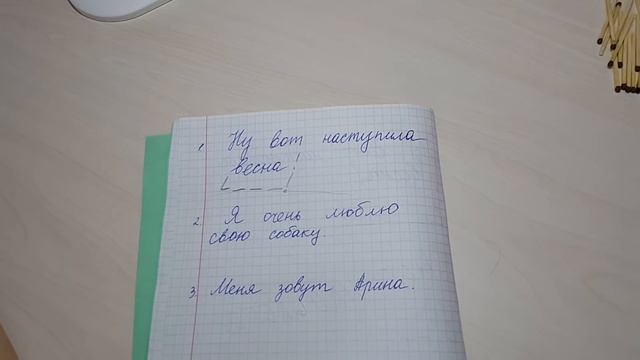 1. Ну вот наступила
весна!
2. Я очень люблю
свою собаку.
3. Меня зовут Арина.